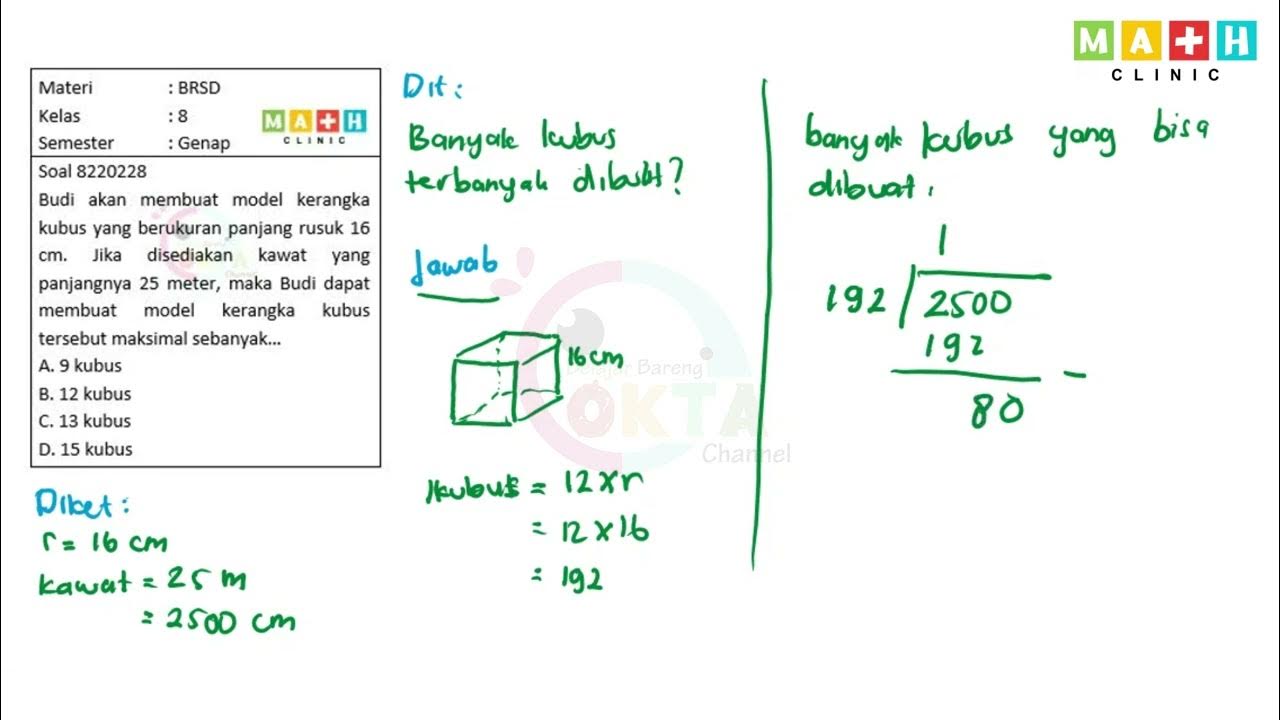 MATH
CLINIC
Materi : BRSD
Kelas : 8
MATH
CLINIC
Semester : Genap
Soal 8220228
Budi akan membuat model kerangka
kubus yang berukuran panjang rusuk 16
cm. Jika disediakan kawat yang
panjangnya 25 meter, maka Budi dapat
membuat model kerangka kubus
tersebut maksimal sebanyak...
A. 9 kubus
B. 12 kubus
C. 13 kubus
D. 15 kubus
Diket:
r = 16 cm
kawat = 25 m
= 2500 cm
Dit:
Banyak kubus
terbanyak dibuat?
Jawab
16 cm
1 kubus = 12 x r
= 12 x 16
= 192
Belajar Bareng
OKTA
Channel
banyak kubus yang bisa
dibuat.
1
192 2500
192
–
80